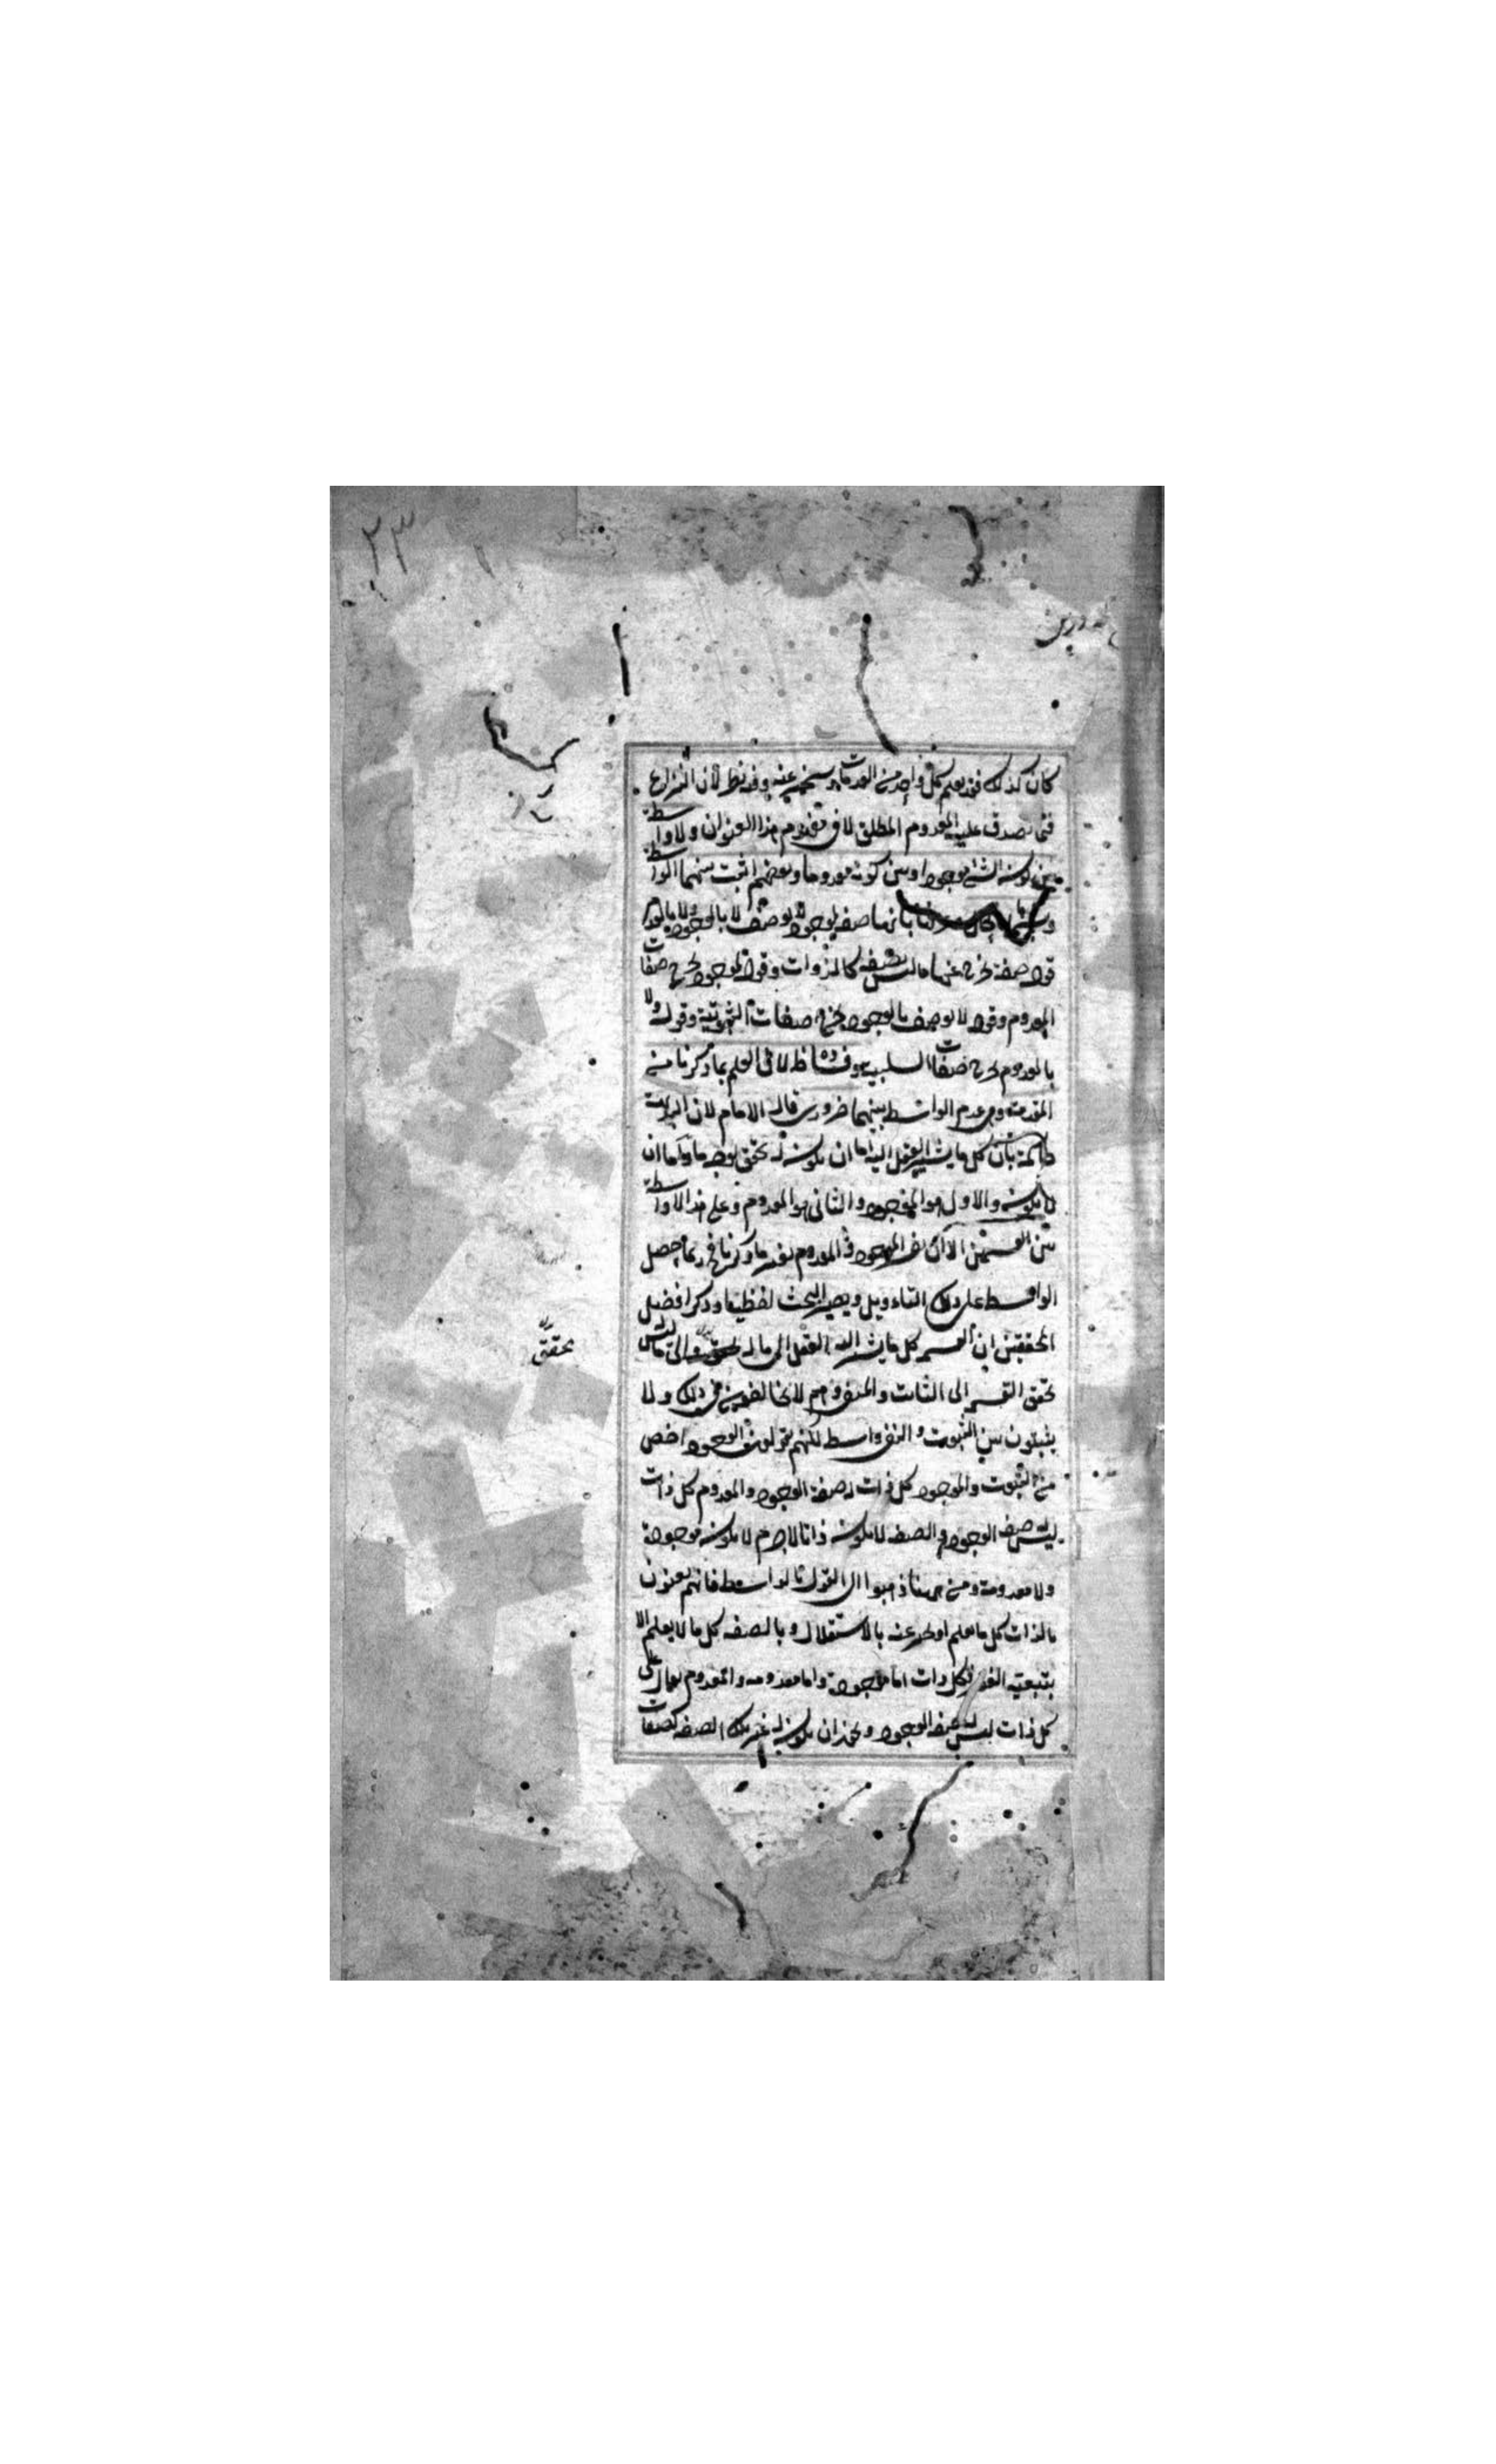 ٢٣
كان كذلك فقد يعلم كل واحد من المعدومات ويخبر عنه وفيه نظر لان النزاع
فيما يصدق عليه المعدوم المطلق لا في مفهوم هذا العنوان ولا واسطة
بين كون الشئ موجودا وبين كونه معدوما وبعضهم اثبت بينهما الواسطة
بانها صفة لموجود لا يوصف لا بالوجود ولا بالعدم
قوله صفة يخرج عنها ما ليس بصفة كالذوات وقوله لموجود يخرج صفات
المعدوم وقوله لا يوصف بالوجود يخرج صفات الثبوتية وقوله ولا
بالعدم يخرج صفات السلبية وفساده ظ لان العلم بما ذكرنا من
المقدمة وهى عدم الواسطة بينهما ضرورى قال الامام لان البديهة
حاكمة بان كل ما يشير العقل اليه اما ان يكون له تحقق بوجه ما واما ان
لا يكون والاول هو الموجود والثانى هو المعدوم وعلى هذا لا واسطة
بين القسمين الا ان يفسر الموجود والمعدوم بغير ما ذكرنا فح ربما حصل
الواسطة على ذلك التاويل ويصير البحث لفظيا وذكر افضل
المحققين ان القسمة كل ما يشير اليه العقل الى ما له تحقق والى ما ليس له
تحقق القسمة الى الثابت والمنفى وهم لا يخالفون فى ذلك ولا
يثبتون بين الثبوت والنفى واسطة لكنهم يقولون الوجود اخص
من الثبوت والموجود كل ذات له صفة الوجود والمعدوم كل ذات
ليس له صفة الوجود والصفة لا يكون ذاتا لا جرم لا يكون موجودة
ولا معدومة ومن ههنا ذهبوا الى القول بالواسطة فانهم يعنون
بالذات كل ما يعلم او يخبر عنه بالاستقلال وبالصفة كل ما لا يعلم الا
بتبعية الغير فكل ذات اما موجودة واما معدومة والمعدوم يقال على
كل ذات ليس له صفة الوجود ويجوز ان يكون له غير تلك الصفة كصفات
تحقق